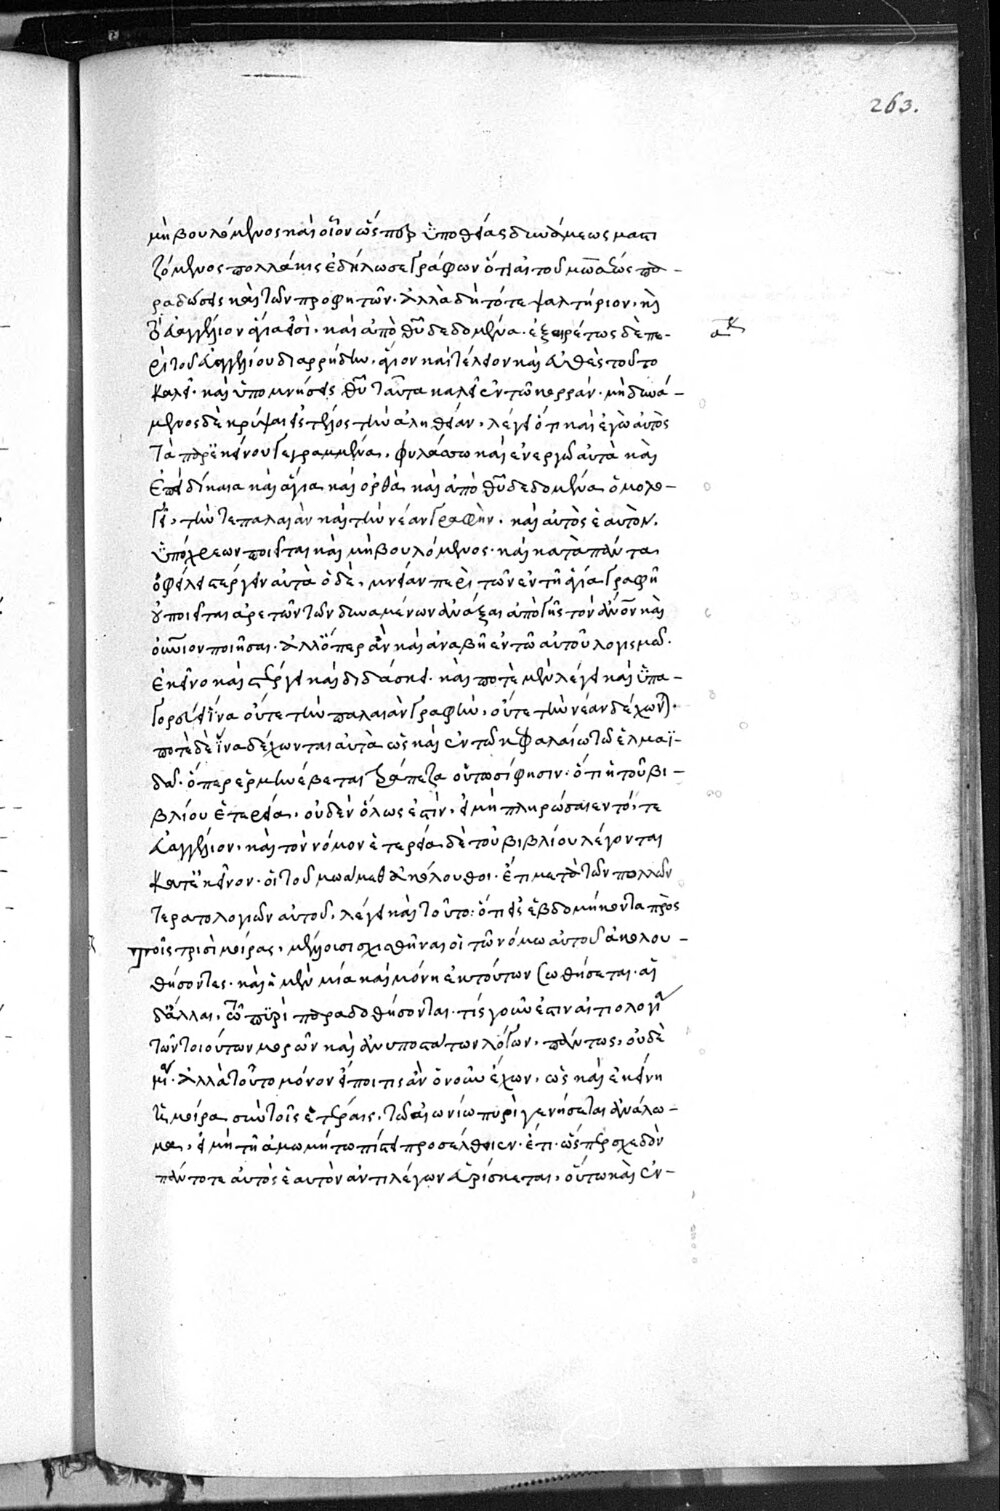 263.
μὴ βουλόμενος καὶ οἷον ὥσπερ ὑπὸ θείας δυνάμεως μαστι
ζόμενος πολλάκις ἐδήλωσε γράφων ὅτι αἱ τοῦ μωσέως πα-
ραδώσεις καὶ τῶν προφητῶν· ἀλλὰ δὴ τότε ψαλτήριον, καὶ
τὸ εὐαγγέλιον ἅγια εἰσὶ· καὶ ἀπὸ θῦ δεδομένα· ἐξαιρέτως δὲ πε-
ρὶ τοῦ εὐαγγελίου διαρρήδην, ἅγιον καὶ τέλειον καὶ εὐθὲς τοῦτο
καλεῖ· καὶ ὑπομνήσεις θῦ ταῦτα καλεῖ ἐν τῶ κορράν· μὴ δυνά-
μενος δὲ κρύψαι εἰς τέλος τὴν ἀλήθειαν, λέγει ὅτι καὶ ἐγὼ αὐτὸς
τὰ παρ' ἐκείνου γεγραμμένα, φυλάσσω καὶ ἐνεργῶ αὐτὰ καὶ
ἐπεὶ δίκαια καὶ ἅγια καὶ ὀρθὰ καὶ ἀπὸ θῦ δεδομένα ὁμολο-
γεῖ, τήν τε παλαιὰν καὶ τὴν νέαν γραφὴν, καὶ αὐτὸς ἑαυτὸν
ὑπόχρεων ποιεῖται καὶ μὴ βουλόμενος· καὶ κατὰ πάντα
ὀφείλει στέργειν αὐτὰ ὁ δὲ, μνείαν περὶ τῶν ἐν τῆ ἁγία γραφῆ
οὐ ποιεῖται ἀρετῶν τῶν δυναμένων ἀνάξαι ἀπὸ γῆς τὸν ἄνον καὶ
οὐνιον ποιῆσαι· ἀλλ' ὅπερ ἂν καὶ ἀναβῆ ἐν τῶ αὐτοῦ λογισμῶ·
ἐκεῖνο καὶ στέργει καὶ διδάσκει· καὶ ποτὲ μὲν λέγει καὶ ὑπα-
γορεύει ἵνα οὔτε τὴν παλαιὰν γραφὴν, οὔτε τὴν νέαν δέχωνται·
ποτὲ δὲ ἵνα δέχωνται αὐτὰ ὡς καὶ ἐν τῶ κεφαλαίω τῶ ἐλμαΐ-
δα· ὅπερ ἑρμηνεύεται τράπεζα οὑτωσί φησιν· ὅτι ἡ τοῦ βι-
βλίου ἑτερεία, οὐδὲν ὅλως ἐστὶν, εἰ μὴ πληρώσαιεν τό, τε
εὐαγγέλιον, καὶ τὸν νόμον ἑτερεία δὲ τοῦ βιβλίου λέγονται
κατ' ἐκεῖνον· οἱ τοῦ μωάμεθ ἀκόλουθοι· ἔτι μετὰ τῶν πολλῶν
τερατολογιῶν αὐτοῦ, λέγει καὶ τοῦτο: ὅτι εἰς ἑβδομήκοντα πρὸς
τοῖς τρισὶ μοίρας, μέλλουσι σχισθῆναι οἱ τῶ νόμω αὐτοῦ ἀκολου-
θήσοντες· καὶ ἡ μὲν μία καὶ μόνη ἐκ τούτων σωθήσεται· αἱ
δ' ἄλλαι, τῶ πυρὶ παραδοθήσονται· τίς γοῦν ἐστιν αἰτιολογία
τῶν τοιούτων μωρῶν καὶ ἀνυποστάτων λόγων, πάντως, οὐδὲ
μία· ἀλλὰ τοῦτο μόνον εἴποι τις ἂν ὁ νοῦν ἔχων, ὡς καὶ ἐκείνη
ἡ μοίρα σὺν τοῖς ἑτέραις, τῶ αἰωνίω πυρὶ γενήσεται ἀνάλω-
μα, εἰ μὴ τῆ ἀμωμήτω πίστει προσέλθοιεν· ἔτι· ὥσπερ σχεδὸν
πάντοτε αὐτὸς ἑαυτὸν ἀντιλέγων εὑρίσκεται, οὕτω καὶ ἐν-